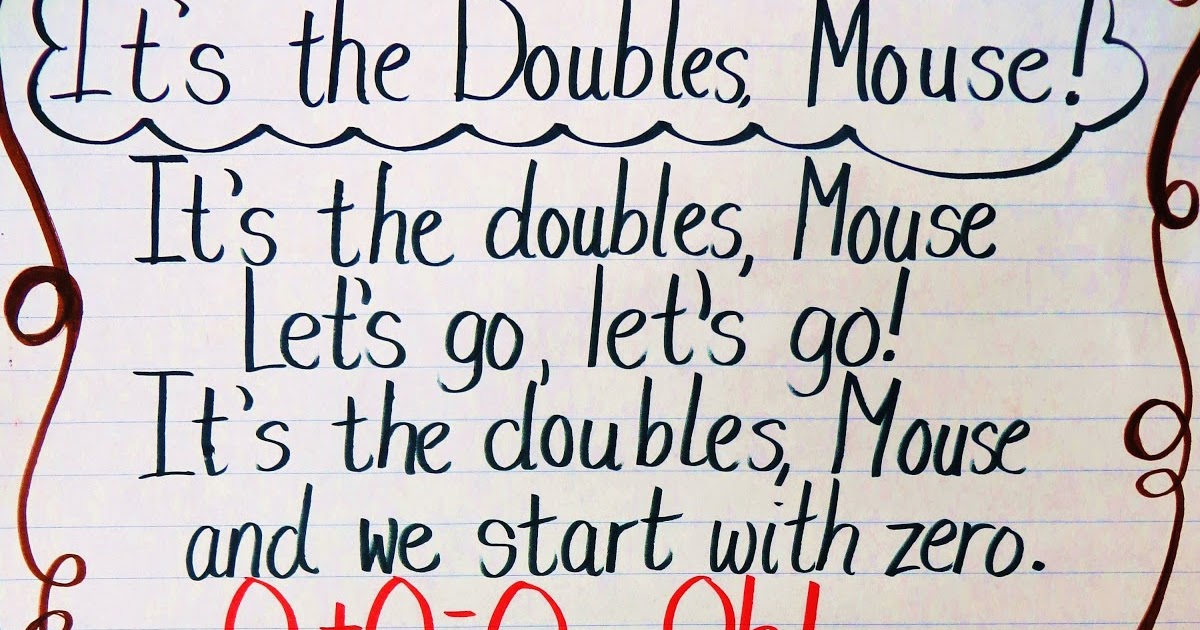 It's the Doubles, Mouse!
It's the doubles, Mouse
Let's go, let's go!
It's the doubles, Mouse
and we start with zero.
0+0=0 Oh!